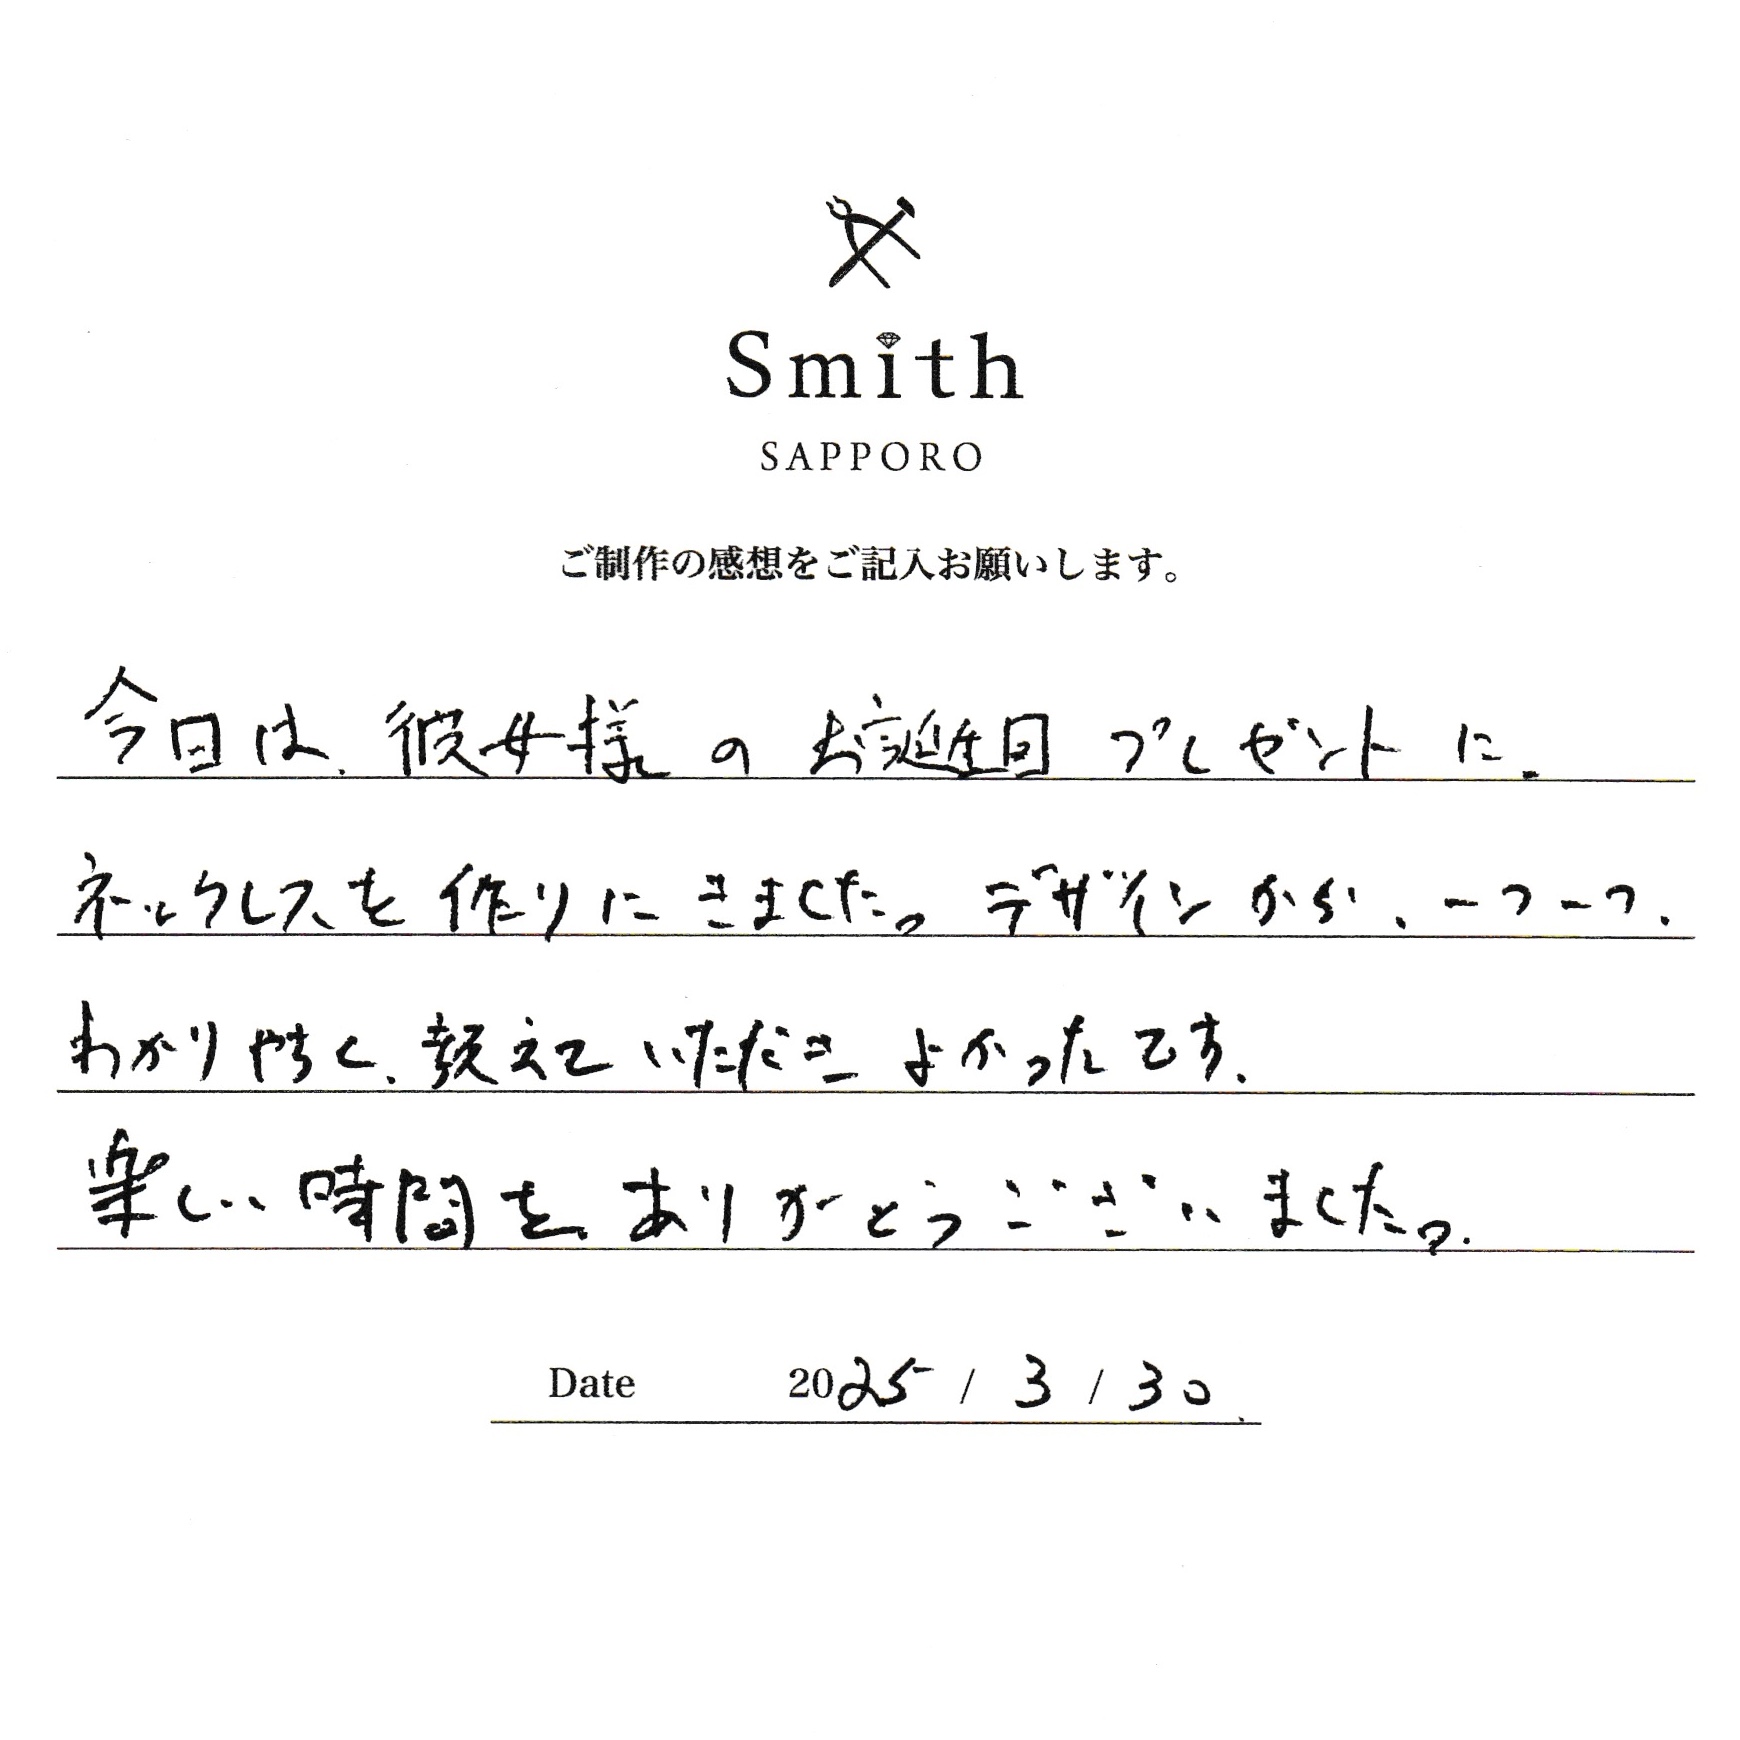 Smith
SAPPORO
ご制作の感想をご記入お願いします。
今日は、彼女様のお誕生日プレゼントに、
ネックレスを作りにきました。デザインから、一つ一つ、
わかりやすく、教えていただきよかったです。
楽しい時間を、ありがとうございました。
Date 2025 / 3 / 30